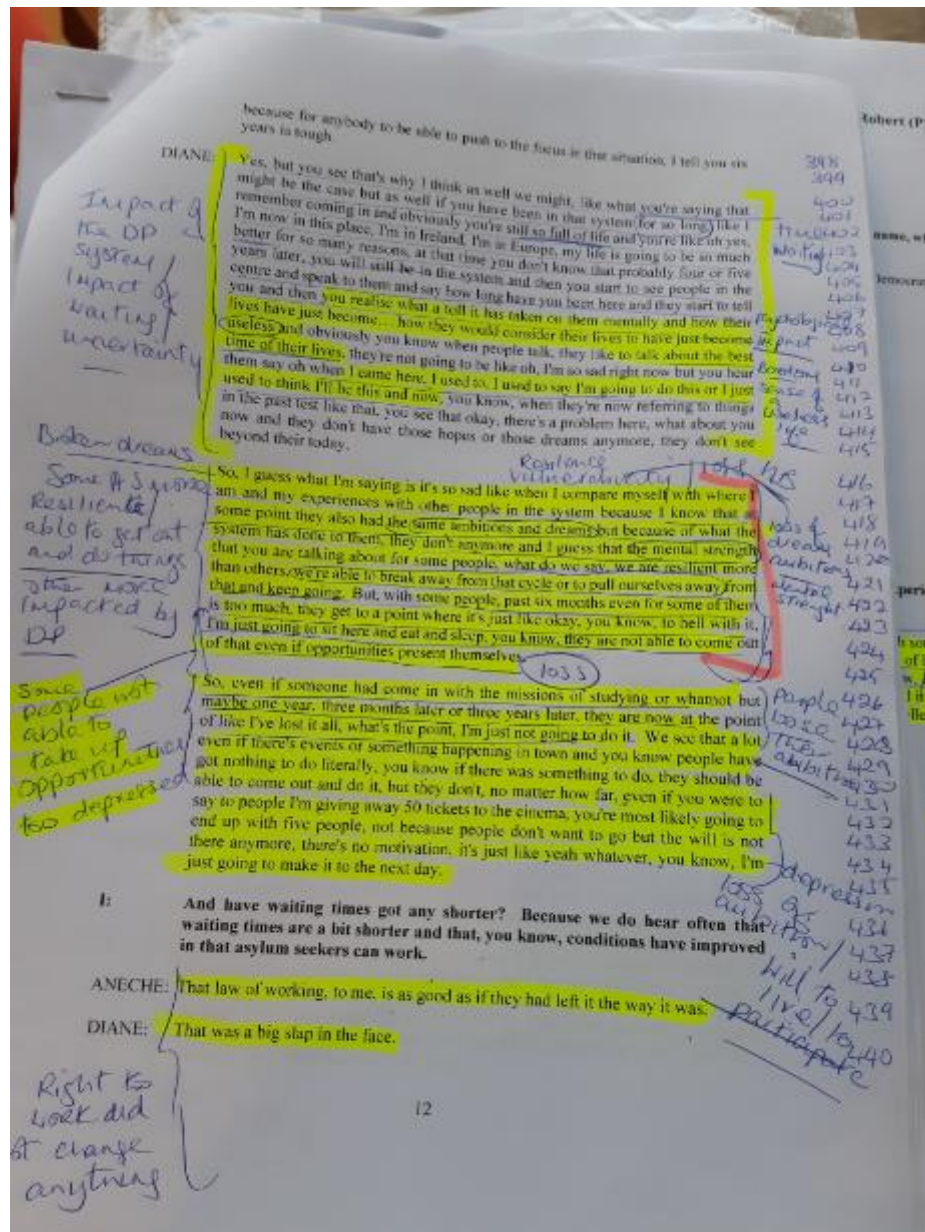 because for anybody to be able to push to the focus in that situation, I tell you six
years is tough
DIANE: Yes, but you see that's why I think as well we might, like what you're saying that
might be the case but as well if you have been in that system (for so long) like I
remember coming in and obviously you're still so full of life and you're like oh yes,
I'm now in this place, I'm in Ireland, I'm in Europe, my life is going to be so much
better for so many reasons, at that time you don't know that probably four or five
years later, you will still be in the system and then you start to see people in the
centre and speak to them and say how long have you been here and they start to tell
you and then you realise what a toll it has taken on them mentally and how their
lives have just become... how they would consider their lives to have just become
useless and obviously you know when people talk, they like to talk about the best
time of their lives, they're not going to be like oh, I'm so sad right now but you hear
them say oh when I came here, I used to, I used to say I'm going to do this or I just
used to think I'll be this and now, you know, when they're now referring to things
in the past test like that, you see that okay, there's a problem here, what about you
now and they don't have those hopes or those dreams anymore, they don't see
beyond their today.
So, I guess what I'm saying is it's so sad like when I compare myself with where I
am and my experiences with other people in the system because I know that at
some point they also had the same ambitions and dreams but because of what the
system has done to them, they don't anymore and I guess that the mental strength
that you are talking about for some people, what do we say, we are resilient more
than others, we're able to break away from that cycle or to pull ourselves away from
that and keep going. But, with some people, past six months even for some of them
is too much, they get to a point where it's just like okay, you know, to hell with it,
I'm just going to sit here and eat and sleep, you know, they are not able to come out
of that even if opportunities present themselves.
So, even if someone had come in with the missions of studying or whatnot but
maybe one year, three months later or three years later, they are now at the point
of like I've lost it all, what's the point, I'm just not going to do it. We see that a lot
even if there's events or something happening in town and you know people have
got nothing to do literally, you know if there was something to do, they should be
able to come out and do it, but they don't, no matter how far, even if you were to
say to people I'm giving away 50 tickets to the cinema, you're most likely going to
end up with five people, not because people don't want to go but the will is not
there anymore, there's no motivation, it's just like yeah whatever, you know, I'm
just going to make it to the next day.
I: And have waiting times got any shorter? Because we do hear often that
waiting times are a bit shorter and that, you know, conditions have improved
in that asylum seekers can work.
ANECHE: That law of working, to me, is as good as if they had left it the way it was.
DIANE: That was a big slap in the face.
12
Impact of
the DP
System/
Impact of
waiting/
uncertainty
Broken dreams
Some AS more
Resilient
able to get out
and do things
other more
impacted by
DP
Some
people not
able to
take up
opportunities
too depressed
Right to
work did
change
anything
Resilience
vulnerability
loss
398
399
400
401
waiting 403
404
405
406
408
impact 409
Boredom 410
sense of 412
useless 413
life 414
415
416
417
loss of 418
dreams 419
420
ambitions 421
mental
strength 422
423
424
425
People 426
lose 427
their 428
429
ambition 430
431
432
433
434
depression 435
loss of
ambition / 436
437
will to 438
live / to 439
participate 440
Robert (P
name, w
Democra